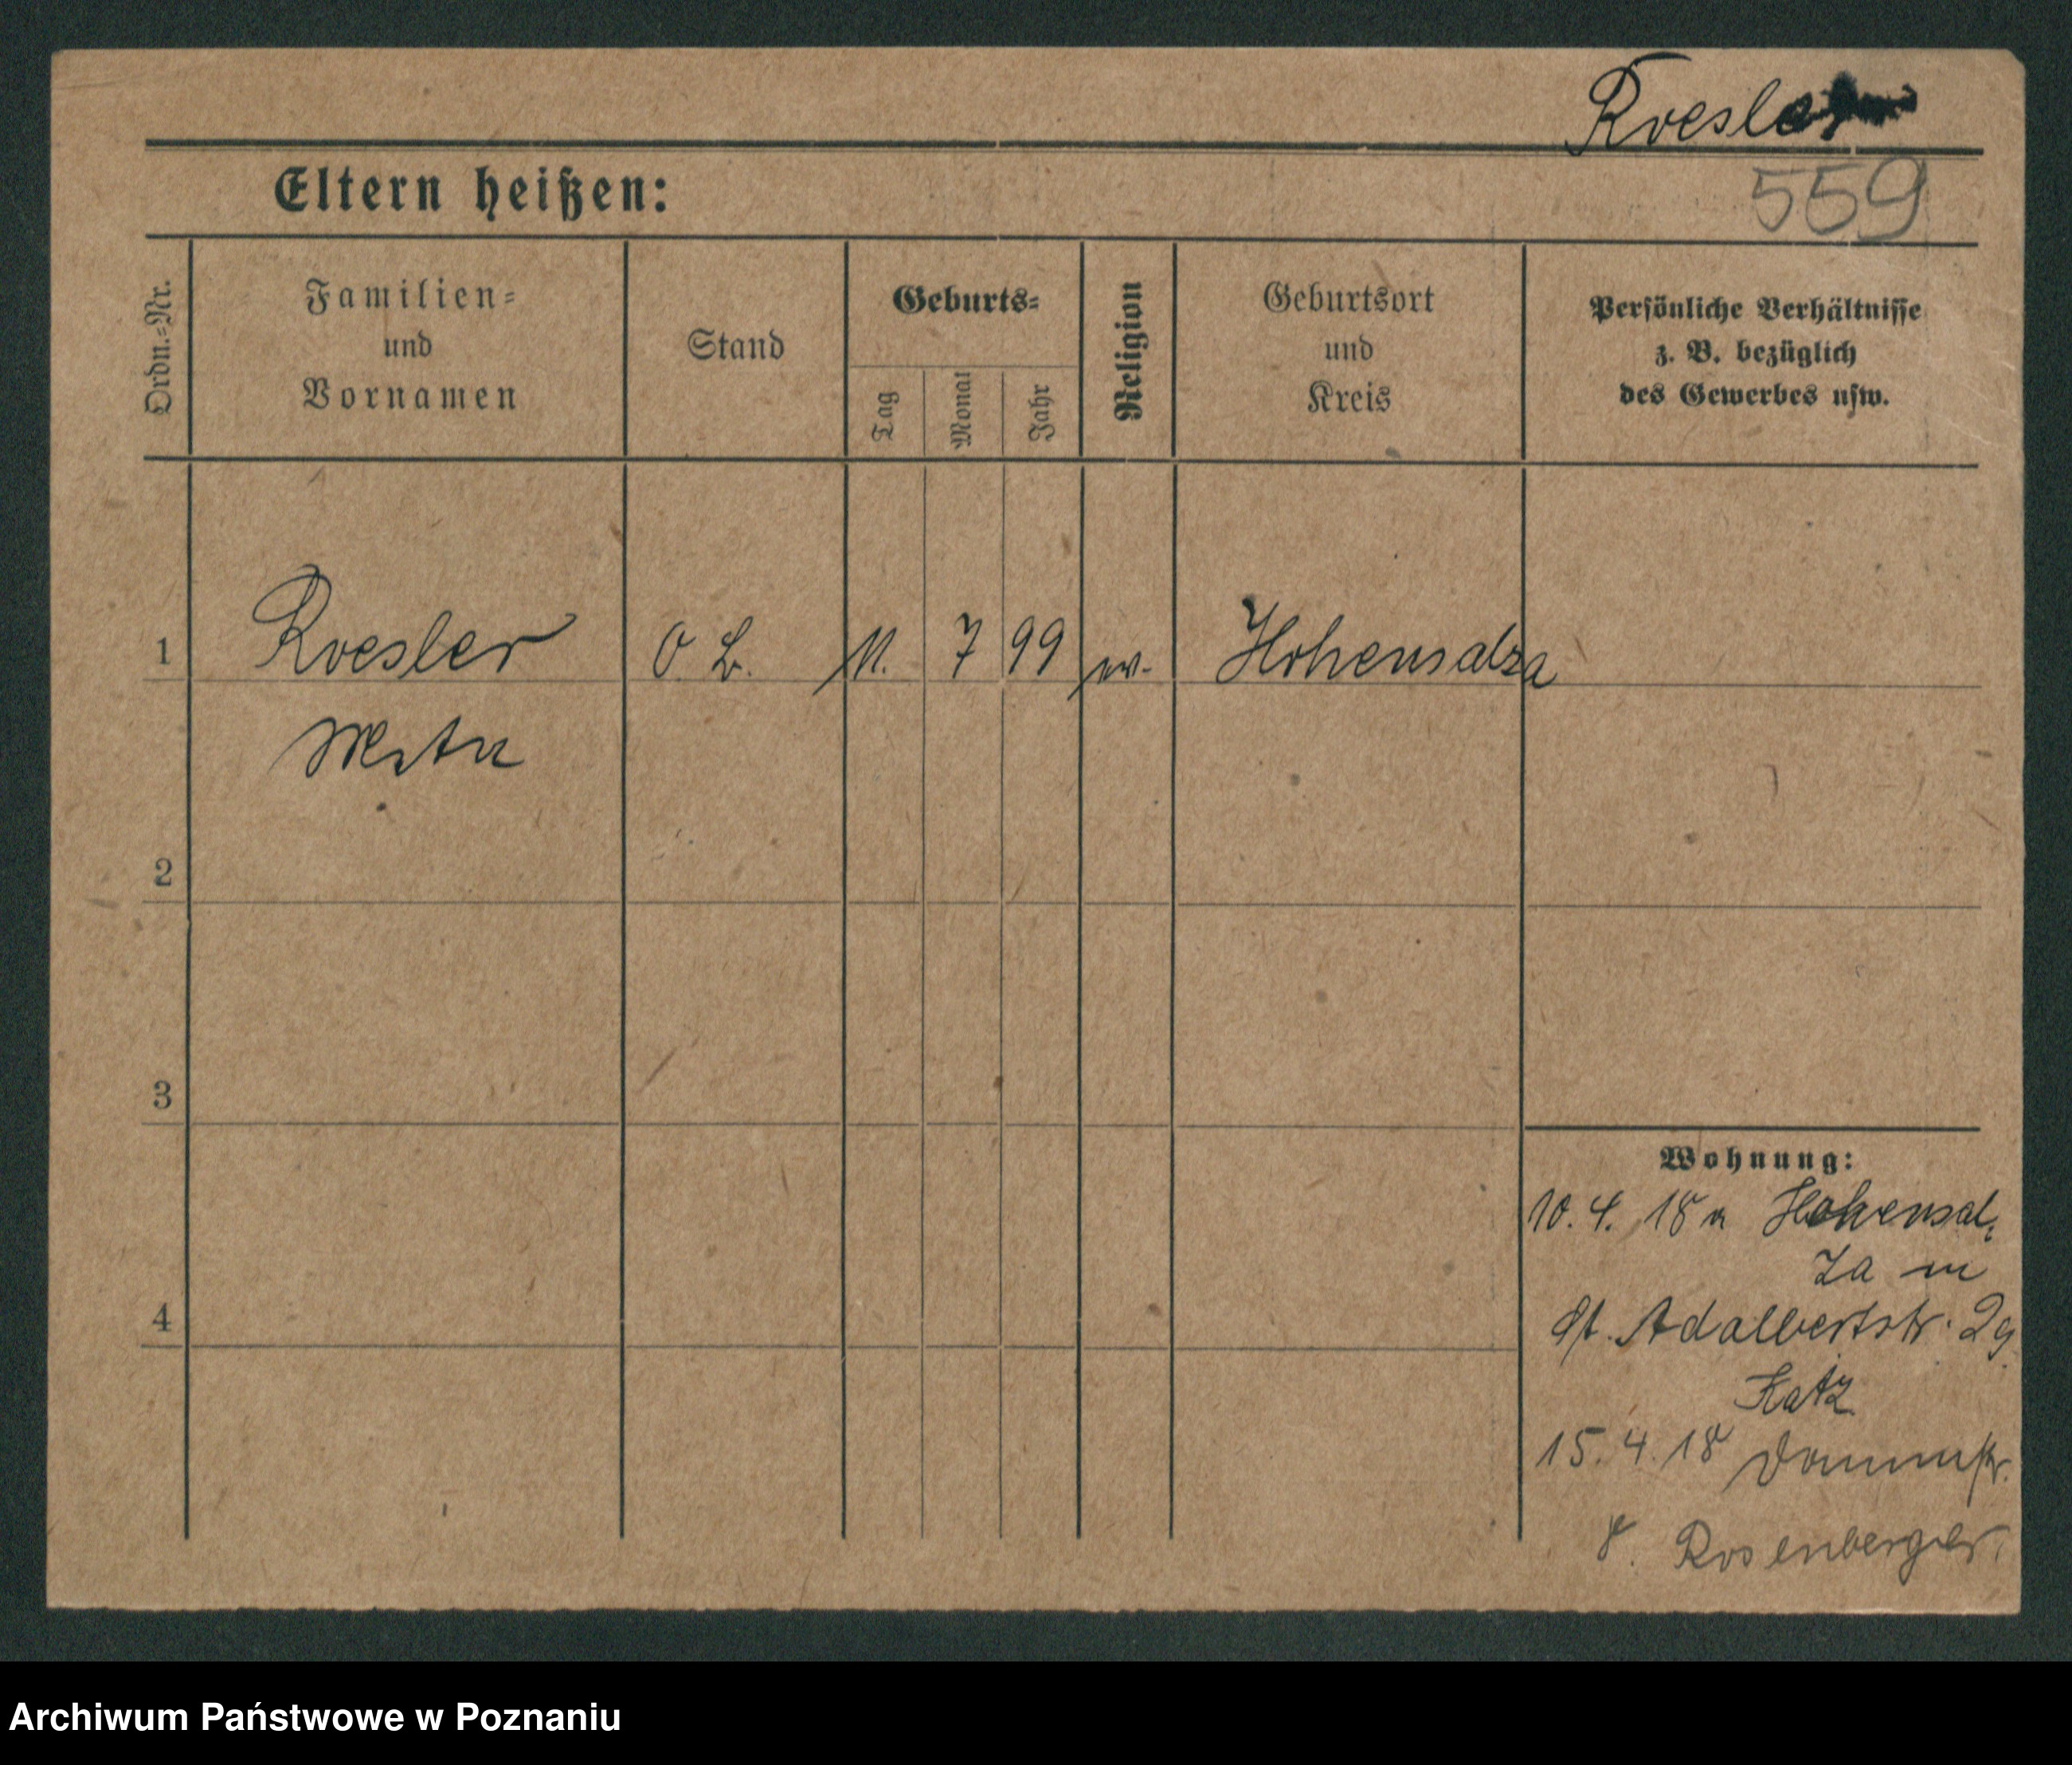 Roesler
559
Eltern heißen:
Ordn.-Nr.
Familien-
und
Vornamen
Stand
Geburts-
Tag
Monat
Jahr
Religion
Geburtsort
und
Kreis
Persönliche Verhältnisse
z. B. bezüglich
des Gewerbes usw.
1 Roesler O. L. 11. 7 99 ev. Hohensalza
Meta
2
3
4
Wohnung:
10. 4. 18 Hohensal-
za
St. Adalbertstr. 29
Katz
15. 4. 18 Dominikstr.
8. Rosenberger
Archiwum Państwowe w Poznaniu